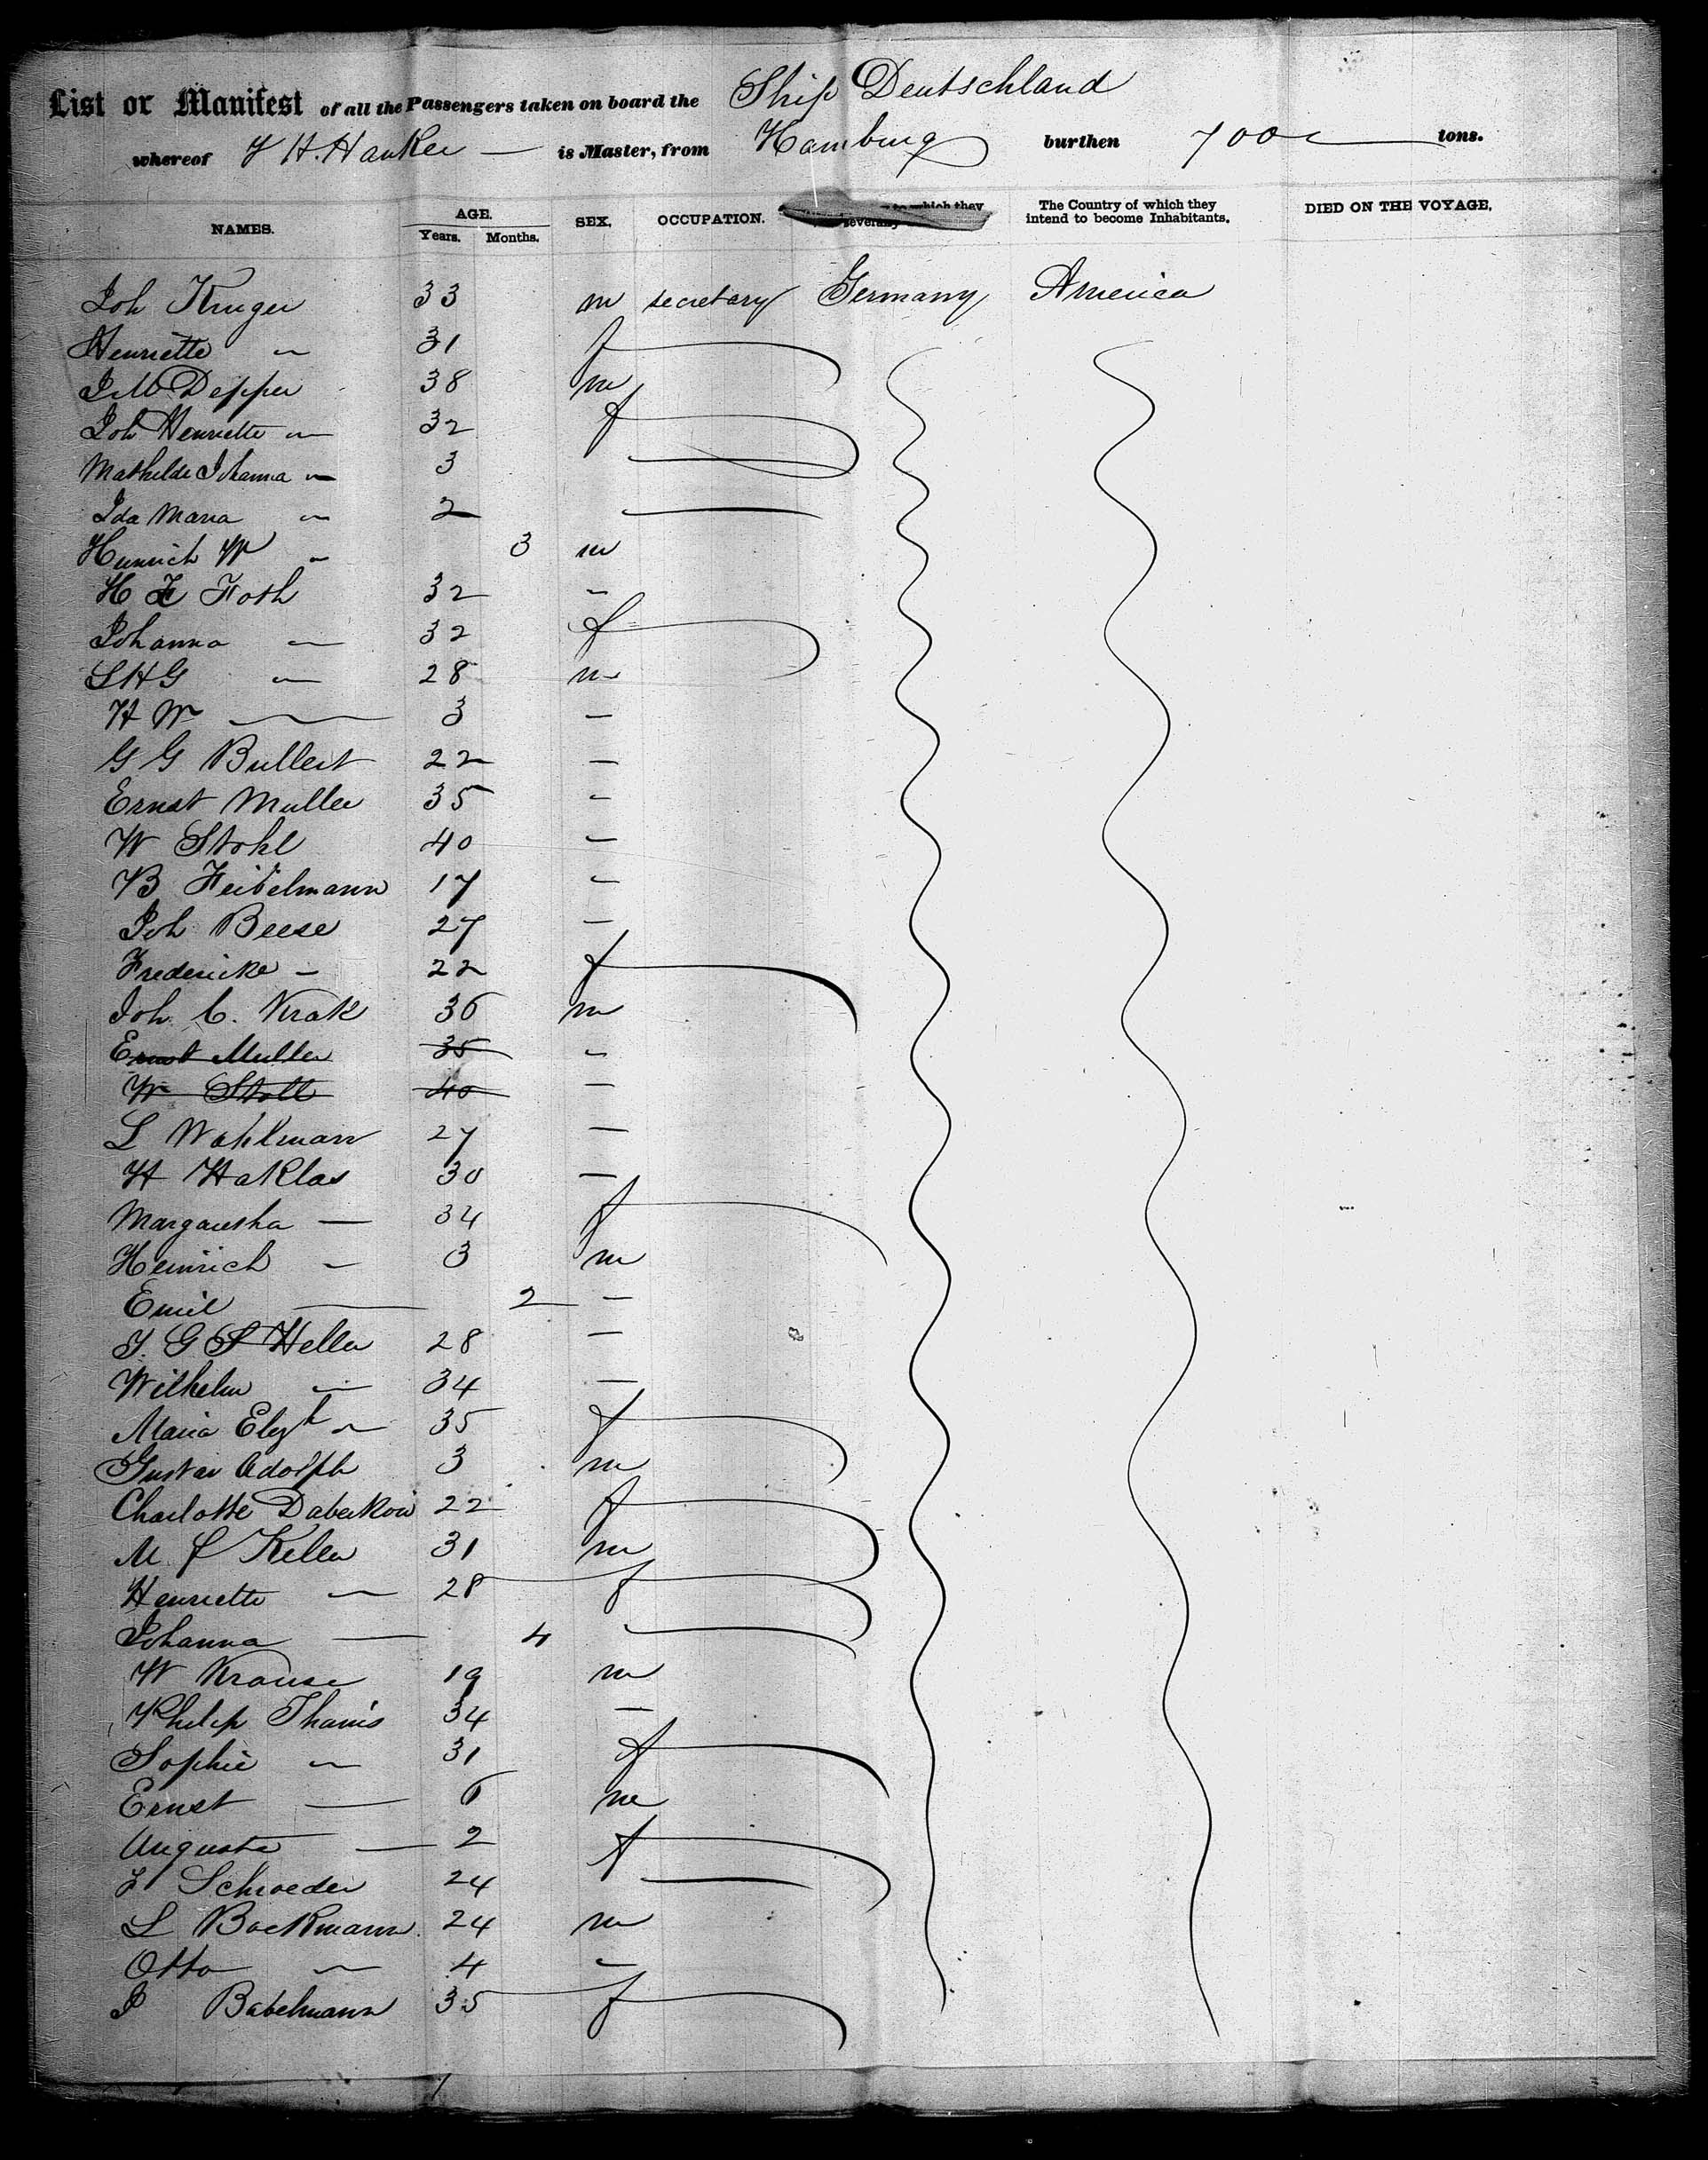 List or Manifest of all the Passengers taken on board the Ship Deutschland
whereof H. is Master, from Hamburg burthen 700 tons.
NAMES. AGE. Years. Months. SEX. OCCUPATION. to which they severally The Country of which they intend to become Inhabitants. DIED ON THE VOYAGE.
Joh Kruger 33 m secretary Germany America
Henriette " 31 f
38 m
Joh Henriette " 32 f
Mathilde Johanna " 3
Ida Maria " 2
Heinrich W " 3 m
H F Foth 32 "
Johanna — 32 f
L H G — 28 m
H W — 3 —
G G Bullert 22 —
Ernst Muller 35 -
W Stohl 40 -
B Feibelmann 17 -
Joh Beese 27 —
Fredericke - 22 f
Joh. C. Krak 36 m
Ernst Muller 35 -
W Stoll 40 —
L Wahlmann 27 —
H Haklas 30 —
Margaretha — 34 f
Heinrich - 3 m
Emil — 2 —
J. G S Heller 28 —
Wilhelm — 34 —
Maria Elizth " 35 f
Gustav Adolph 3 m
Charlotte Daberkow 22 f
M f Keller 31 m
Henriette — 28 f
Johanna — 4
W Krause 19 m
Philip Thams 34 —
Sophie " 31 f
Ernst — 6 m
Auguste — 2 f
F Schroeder 24
L Bockmann 24 m
Otto — 4 -
J Babelmann 35 f